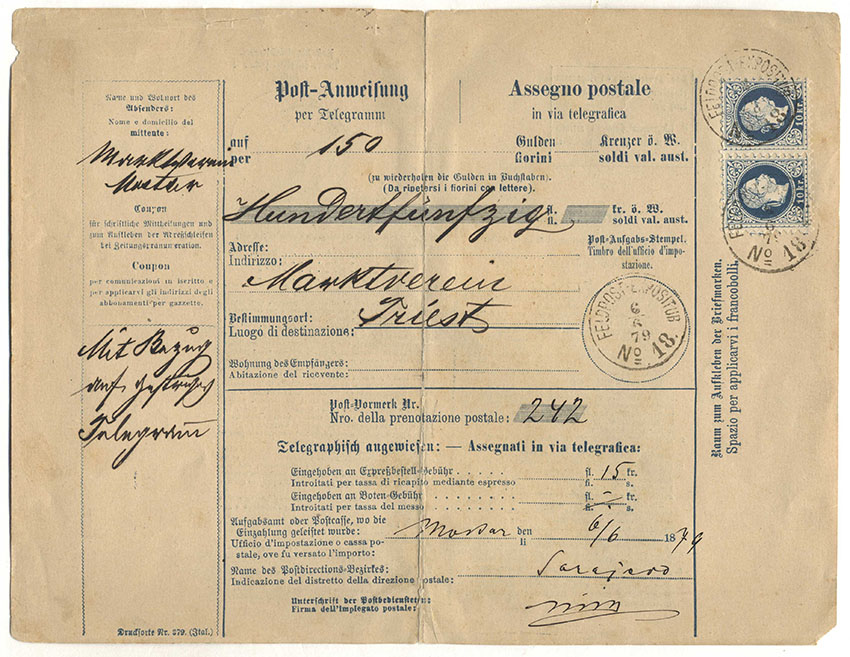 Name und Wohnort des
Absenders:
Nome e domicilio del
mittente:
Marktverein
Mostar
Coupon
für schriftliche Mittheilungen und
zum Aufkleben der Adreßschleifen
bei Zeitungspränumeration.
Coupon
per comunicazioni in iscritto e
per applicarvi gl indirizzi degli
abbonamenti per gazzette.
Mit Bezug
auf
Telegram
Drucksorte Nr. 279. (Ital.)
Post-Anweisung
per Telegramm
Assegno postale
in via telegrafica
auf 150 Gulden Kreuzer ö. W.
per fiorini soldi val. aust.
(zu wiederholen die Gulden in Buchstaben).
(Da ripetersi i fiorini con lettere).
Hundertfünfzig fl. kr. ö. W.
fi. soldi val. aust.
Adresse:
Indirizzo:
Marktverein
Bestimmungsort:
Luogo di destinazione:
Triest
Wohnung des Empfängers:
Abitazione del ricevente:
Post-Aufgabs-Stempel.
Timbro dell'ufficio d'impo-
stazione.
FELDPOST-EXPOSITUR
6
6
79
No 18.
Post-Vormerk Nr.
Nro. della prenotazione postale: 242
Telegraphisch angewiesen: — Assegnati in via telegrafica:
Eingehoben an Expreßbestell-Gebühr fl. 15 kr.
Introitati per tassa di ricapito mediante espresso fi. s.
Eingehoben an Boten-Gebühr fl. kr.
Introitati per tassa del messo fi. s.
Aufgabsamt oder Postcasse, wo die
Einzahlung geleistet wurde:
Ufficio d'impostazione o cassa po-
stale, ove fu versato l'importo:
Mostar den 6/6 1879
li
Name des Postdirections-Bezirkes:
Indicazione del distretto della direzione postale:
Sarajevo
Unterschrift der Postbediensteten:
Firma dell'impiegato postale:
FELDPOST-EXPOSITUR
No 18
10 kr.
10 kr.
FELDPOST
6
79
No 18.
Raum zum Aufkleben der Briefmarken.
Spazio per applicarvi i francobolli.